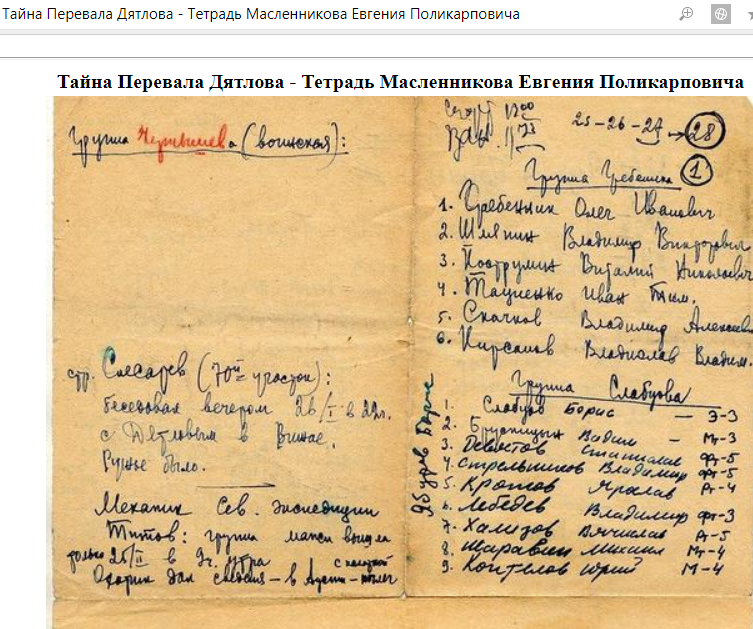 Тайна Перевала Дятлова - Тетрадь Масленникова Евгения Поликарповича
Тайна Перевала Дятлова - Тетрадь Масленникова Евгения Поликарповича
Группа Чернышева (воинская):
стр. Слесарев (70й участок):
беседовал вечером 26/I в 22ч.
с Дятловым в Вижае.
Ружье было.
Механик Сев. экспедиции
Титов: группа манси вышла
только 25/II в 9ч. утра
Охорин дал сведения – в
25-26-27 → 28
Группа Гребенника 1
1. Гребенник Олег Иванович
2. Шляпин Владимир Викторович
3. Пострумин Виталий Николаевич
4. Тациенко Иван
5. Скачков Владимир Алексеев
6. Кирсанов Владислав Владим.
Группа Слабцова
1. Слабцов Борис — Э-3
2. Брусницын Вадим — Мт-3
3. Девятов Станислав Фт-5
4. Стрельников Владимир Фт-5
5. Кротов Ярослав Рт-4
6. Лебедев Владимир Фт-3
7. Хализов Вячеслав Рт-5
8. Шаравин Михаил Мт-4
9. Коптелов Юрий М-4